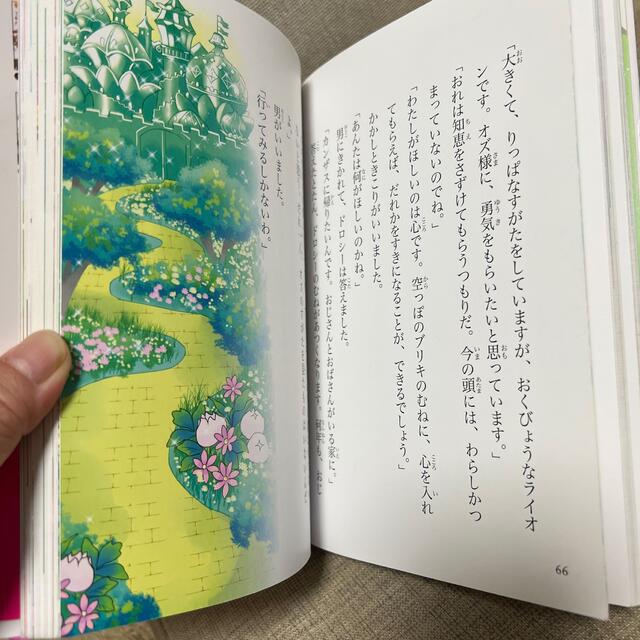 「大きくて、りっぱなすがたをしていますが、おくびょうなライオ
ンです。オズ様に、勇気をもらいたいと思っています。」
「おれは知恵をさずけてもらうつもりだ。今の頭には、わらしかつ
まっていないのでね。」
「わたしがほしいのは心です。空っぽのブリキのむねに、心を入れ
てもらえば、だれかをすきになることが、できるでしょう。」
かかしときこりがいいました。
「あんたは何がほしいのかね。」
男にきかれて、ドロシーは答えました。
「カンザスに帰りたいんです。おじさんとおばさんがいる家に。」
答えたとたん、ドロシーのむねがあつくなります。何年も、おじ
66
よ。」
男がいいました。
「行ってみるしかないわ。」